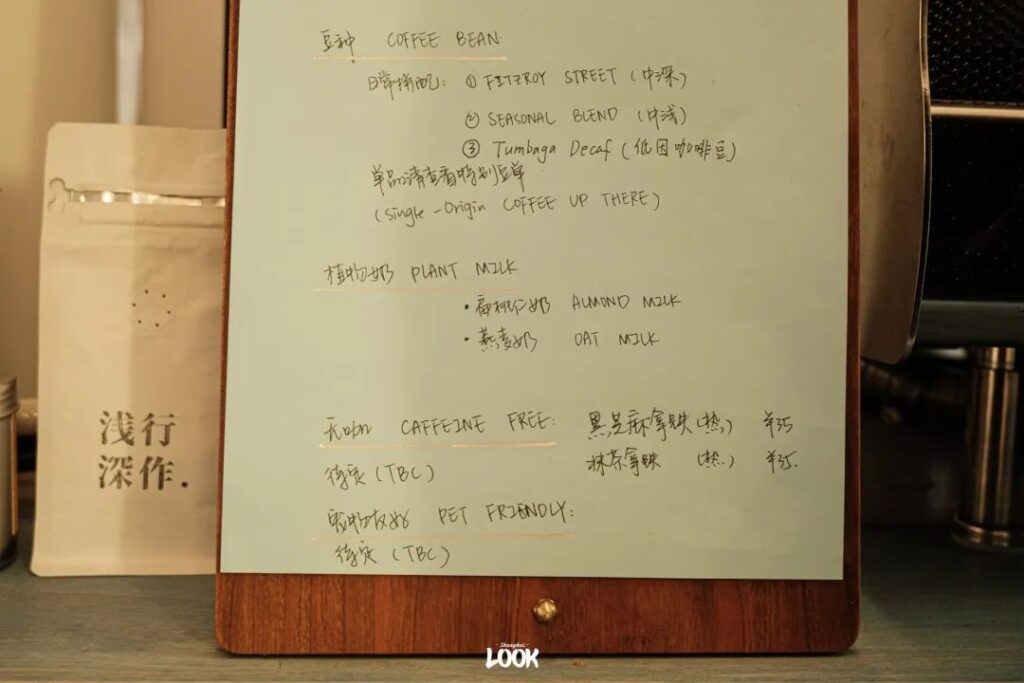 豆种 COFFEE BEAN:
日常拼配: ① FITZROY STREET (中深)
② SEASONAL BLEND (中浅)
③ Tumbaga Decaf (低因咖啡豆)
单品请查看特别豆单
(single-Origin COFFEE UP THERE)
植物奶 PLANT MILK
• 扁桃仁奶 ALMOND MILK
• 燕麦奶 OAT MILK
无咖 CAFFEINE FREE: 黑芝麻拿铁(热) ¥35
抹茶拿铁 (热) ¥35.
待定 (TBC)
宠物友好 PET FRIENDLY:
待定 (TBC)
浅行
深作.
Shanghai
LOOK